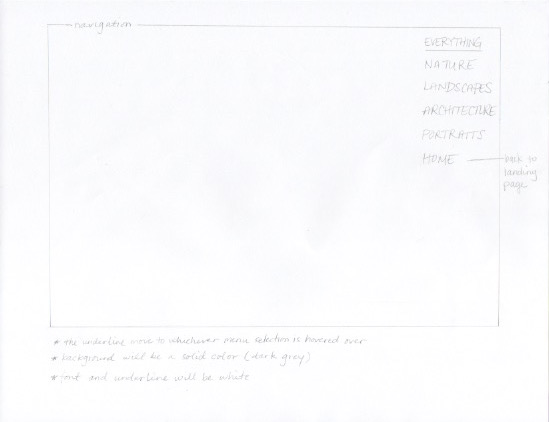 navigation
EVERYTHING
NATURE
LANDSCAPES
ARCHITECTURE
PORTRAITS
HOME
back to
landing
page
* the underline move to whichever menu selection is hovered over
* background will be a solid color (dark grey)
* font and underline will be white